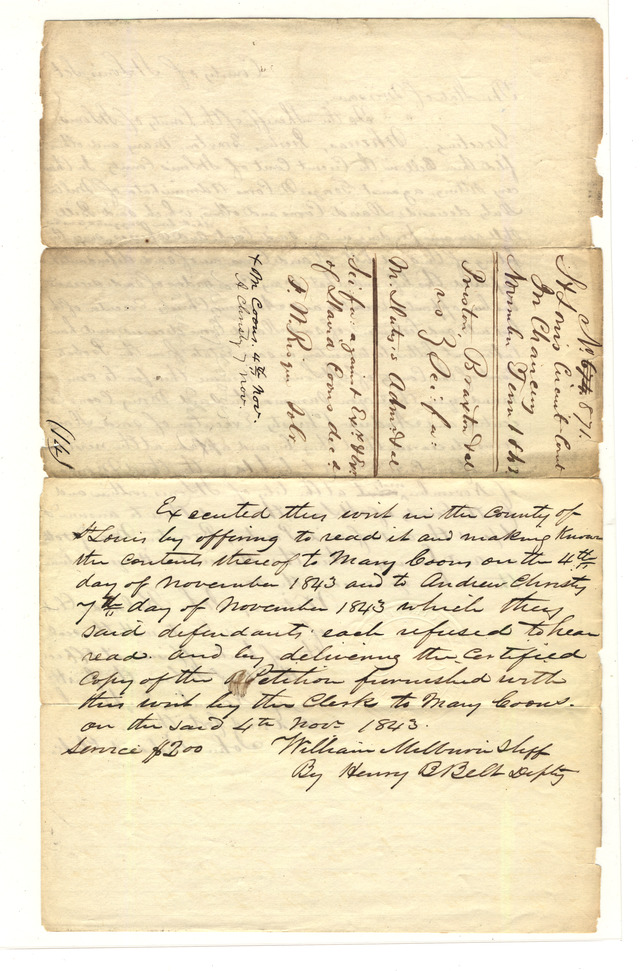 No. 674 871.
St Louis Circuit Court
In Chancery
November Term 1843
Preston, Braxton & al
vs } Sci fa:
M. Slater's Adm. et al
Sci fa: against Exr. &
of David Coons decd
F W Risque Solr
+ M Coons. 4th Nov.
A Christy 7 Nov.
(14)
Executed this writ in the County of
St Louis by offering to read it and making known
the contents thereof to Mary Coons on the 4th
day of November 1843 and to Andrew Christy
7th day of November 1843 which they
said defendants each refused to hear
read. and by delivering the certified
copy of the Petition furnished with
this writ by the Clerk to Mary Coons.
on the said 4th Nov. 1843.
Service $2.00 William Milburn Shff
By Henry B Belt Depty